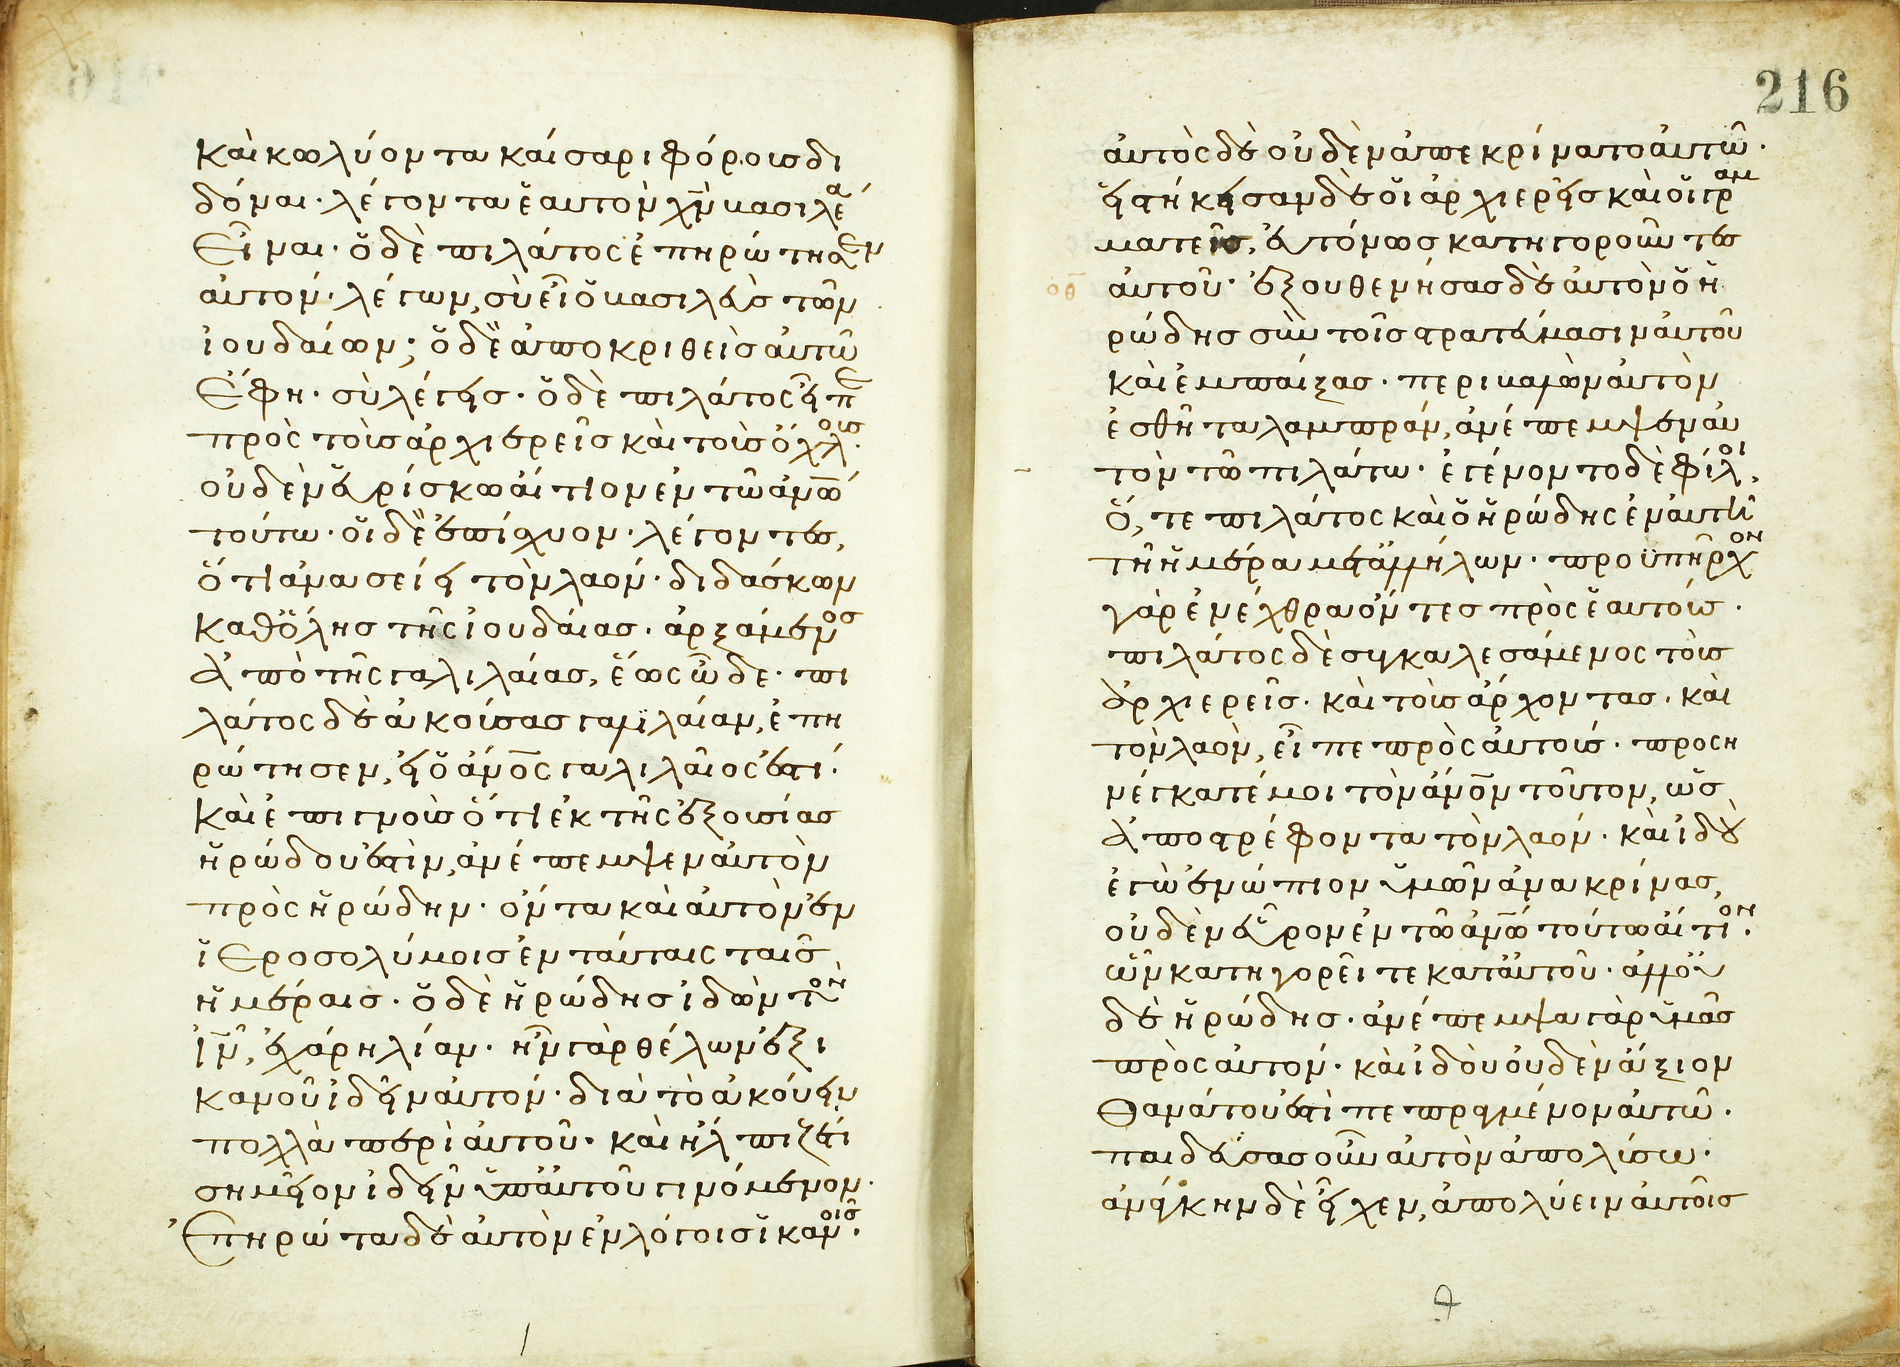 καὶ κωλύοντα καίσαρι φόρους δι
δόναι· λέγοντα ἑαυτὸν χν̅ βασιλέα
εἶναι· ὁ δὲ πιλάτος ἐπηρώτησεν
αὐτόν· λέγων, σὺ εἶ ὁ βασιλεὺς τῶν
ἰουδαίων; ὁ δὲ ἀποκριθεὶς αὐτῶ
ἔφη· σὺ λέγεις· ὁ δὲ πιλάτος εἶπε
πρὸς τοὺς ἀρχιερεῖς καὶ τοὺς ὄχλους·
οὐδὲν εὑρίσκω αἴτιον ἐν τῶ ἀνω̅
τούτω· οἱ δὲ ἐπίσχυον· λέγοντες,
ὅτι ἀνασείει τὸν λαόν· διδάσκων
καθ' ὅλης τῆς ἰουδαίας· ἀρξάμενος
ἀπὸ τῆς γαλιλαίας, ἕως ὧδε· πι
λάτος δὲ ἀκούσας γαλιλαίαν, ἐπη
ρώτησεν, εἰ ὁ ἀνο̅ς γαλιλαῖος ἐστι·
καὶ ἐπιγνοὺς ὅτι ἐκ τῆς ἐξουσίας
ἡρώδου ἐστὶν, ἀνέπεμψεν αὐτὸν
πρὸς ἡρώδην· ὄντα καὶ αὐτὸν ἐν
ἱεροσολύμοις ἐν ταύταις ταῖς
ἡμέραις· ὁ δὲ ἡρώδης ἰδὼν τὸν
ιν̅, ἐχάρη λίαν· ἦν γὰρ θέλων ἐξ ι
κανοῦ ἰδεῖν αὐτόν· διὰ τὸ ἀκούειν
πολλὰ περὶ αὐτοῦ· καὶ ἤλπιζέ τι
σημεῖον ἰδεῖν ὑπ' αὐτοῦ γινόμενον·
ἐπηρώτα δὲ αὐτὸν ἐν λόγοις ἱκανοῖς·
216
αὐτὸς δὲ οὐδὲν ἀπεκρίνατο αὐτῶ·
εἱστήκεισαν δὲ οἱ ἀρχιερεῖς καὶ οἱ γραμ
ματεῖς, εὐτόνως κατηγοροῦντες
αὐτοῦ· ἐξουθενήσας δὲ αὐτὸν ὁ ἡ
ρώδης σὺν τοῖς στρατεύμασιν αὐτοῦ
καὶ ἐμπαίξας· περιβαλὼν αὐτὸν
ἐσθῆτα λαμπράν, ἀνέπεμψεν αὐ
τὸν τῶ πιλάτω· ἐγένοντο δὲ φίλοι,
ὅ, τε πιλάτος καὶ ὁ ἡρώδης ἐν αὐτῆ
τῆ ἡμέρα μετ' ἀλλήλων· προϋπῆρχον
γὰρ ἐν ἔχθρα ὄντες πρὸς ἑαυτούς·
πιλάτος δὲ συγκαλεσάμενος τοὺς
ἀρχιερεῖς· καὶ τοὺς ἄρχοντας· καὶ
τὸν λαὸν, εἶπε πρὸς αὐτούς· προση
νέγκατέ μοι τὸν ἀνο̅ν τοῦτον, ὡς
ἀποστρέφοντα τὸν λαόν· καὶ ἰδοὺ
ἐγὼ ἐνώπιον ὑμῶν ἀνακρίνας,
οὐδὲν εὗρον ἐν τῶ ἀνω̅ τούτω αἴτιον·
ὧν κατηγορεῖτε κατ' αὐτοῦ· ἀλλ' οὐ
δὲ ἡρώδης· ἀνέπεμψα γὰρ ὑμᾶς
πρὸς αὐτόν· καὶ ἰδοὺ οὐδὲν ἄξιον
θανάτου ἐστὶ πεπραγμένον αὐτῶ·
παιδεύσας οὖν αὐτὸν ἀπολύσω·
ἀνάγκην δὲ εἶχεν, ἀπολύειν αὐτοῖς